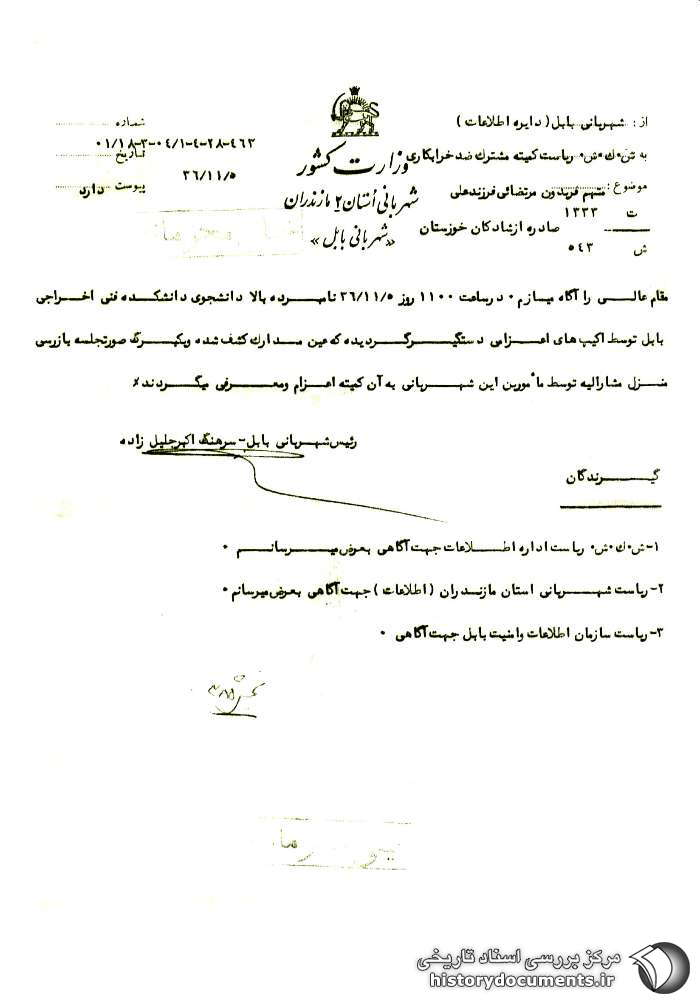 از: شهربانی بابل (دایره اطلاعات)
به ش۰ك۰ش۰ ریاست کمیته مشترك ضد خرابکاری
موضوع: متهم فریدون مرتضائی فرزند علی
ت ۱۳۳۳
ش ۵٤۳
صادره از شادکان خوزستان
وزارت کشور
شهربانی استان ۲ مازندران
«شهربانی بابل»
شماره
۰۱/۱۸-۳-۰٤/۱-٤-۲۸-٤۶۳
تاریخ ۳۶/۱۱/۵
پیوست دارد
مقام عالی را آگاه میسازم ۰ در ساعت ۱۱۰۰ روز ۳۶/۱۱/۵ نامبرده بالا دانشجوی دانشکده فنی اخراجی
بابل توسط اکیپ های اعزامی دستگیر گردیده که عین مدارك کشف شده ویکبرگ صورتجلسه بازرسی
منزل مشارالیه توسط مأمورین این شهربانی به آن کمیته اعزام ومعرفی میگردند ٪
رئیس شهربانی بابل - سرهنگ اکبر جلیل زاده
گیرندگان
۱- ش۰ك۰ش۰ ریاست اداره اطلاعات جهت آگاهی بعرض میرسانم ۰
۲- ریاست شهربانی استان مازندران (اطلاعات) جهت آگاهی بعرض میرسانم ۰
۳- ریاست سازمان اطلاعات وامنیت بابل جهت آگاهی ۰
مرکز بررسی اسناد تاریخی
historydocuments.ir